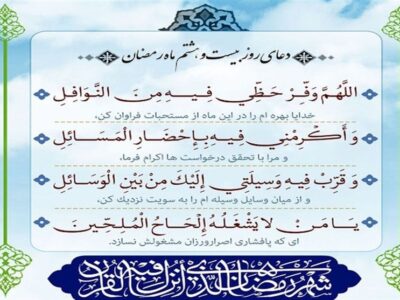 دعای روز بیست و هشتم ماه رمضان
اللَّهُمَّ وَفِّرْ حَظِّي فِيهِ مِنَ النَّوَافِلِ
خدایا بهره ام را در این ماه از مستحبات فراوان کن،
وَ أَكْرِمْنِي فِيهِ بِإِحْضَارِ الْمَسَائِلِ
و مرا با تحقق درخواست ها اکرام فرما،
وَ قَرِّبْ فِيهِ وَسِيلَتِي إِلَيْكَ مِنْ بَيْنِ الْوَسَائِلِ
و از میان وسایل وسیله ام را به سویت نزدیک کن،
يَا مَنْ لَا يَشْغَلُهُ إِلْحَاحُ الْمُلِحِّينَ
ای که پافشاری اصرارورزان مشغولش نسازد.
شهر رمضان الذی انزل فیه القرآن